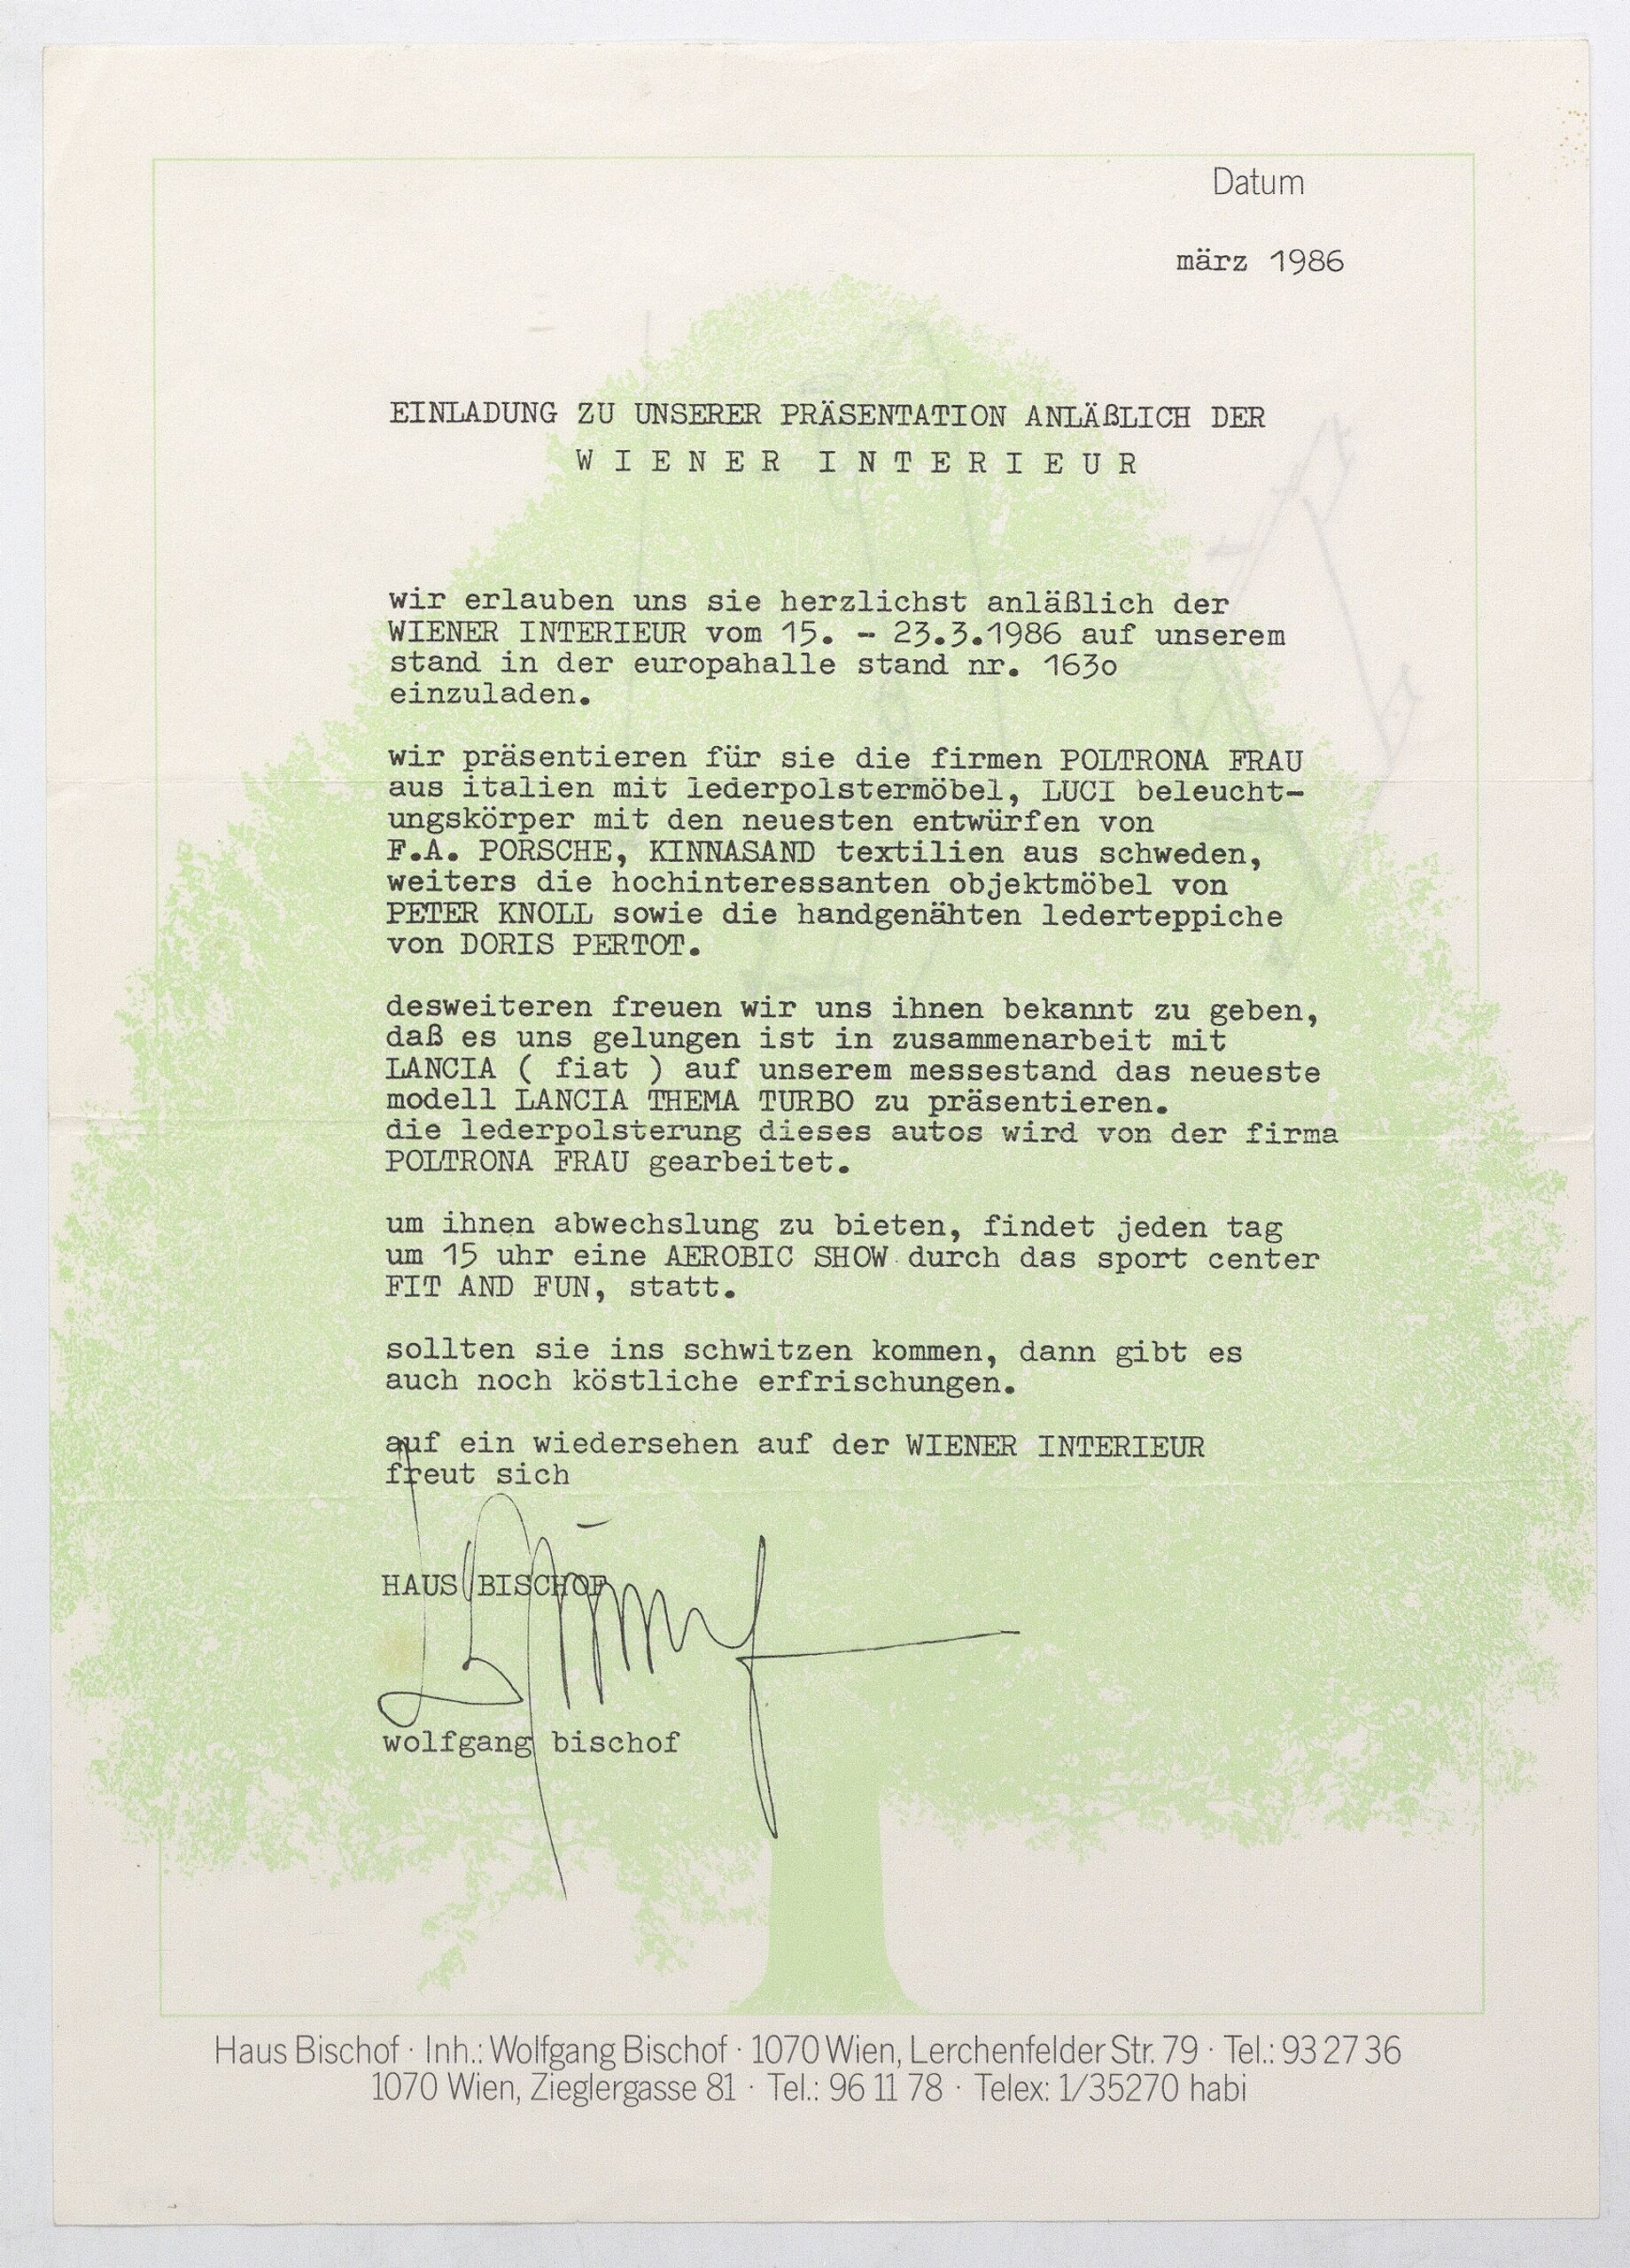 Datum
märz 1986
EINLADUNG ZU UNSERER PRÄSENTATION ANLÄßLICH DER
W I E N E R  I N T E R I E U R
wir erlauben uns sie herzlichst anläßlich der
WIENER INTERIEUR vom 15. - 23.3.1986 auf unserem
stand in der europahalle stand nr. 163o
einzuladen.
wir präsentieren für sie die firmen POLTRONA FRAU
aus italien mit lederpolstermöbel, LUCI beleucht-
ungskörper mit den neuesten entwürfen von
F.A. PORSCHE, KINNASAND textilien aus schweden,
weiters die hochinteressanten objektmöbel von
PETER KNOLL sowie die handgenähten lederteppiche
von DORIS PERTOT.
desweiteren freuen wir uns ihnen bekannt zu geben,
daß es uns gelungen ist in zusammenarbeit mit
LANCIA ( fiat ) auf unserem messestand das neueste
modell LANCIA THEMA TURBO zu präsentieren.
die lederpolsterung dieses autos wird von der firma
POLTRONA FRAU gearbeitet.
um ihnen abwechslung zu bieten, findet jeden tag
um 15 uhr eine AEROBIC SHOW durch das sport center
FIT AND FUN, statt.
sollten sie ins schwitzen kommen, dann gibt es
auch noch köstliche erfrischungen.
auf ein wiedersehen auf der WIENER INTERIEUR
freut sich
HAUS BISCHOF
wolfgang bischof
Haus Bischof · Inh.: Wolfgang Bischof · 1070 Wien, Lerchenfelder Str. 79 · Tel.: 93 27 36
1070 Wien, Zieglergasse 81 · Tel.: 96 11 78 · Telex: 1/35270 habi